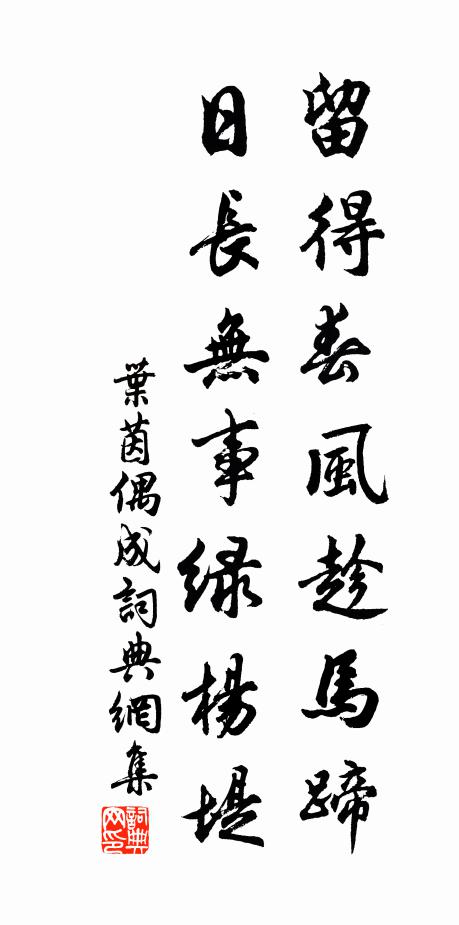 留得春風趁馬蹄
日長無事緑楊堤
葉茵偶成詞典網集
詞典网印